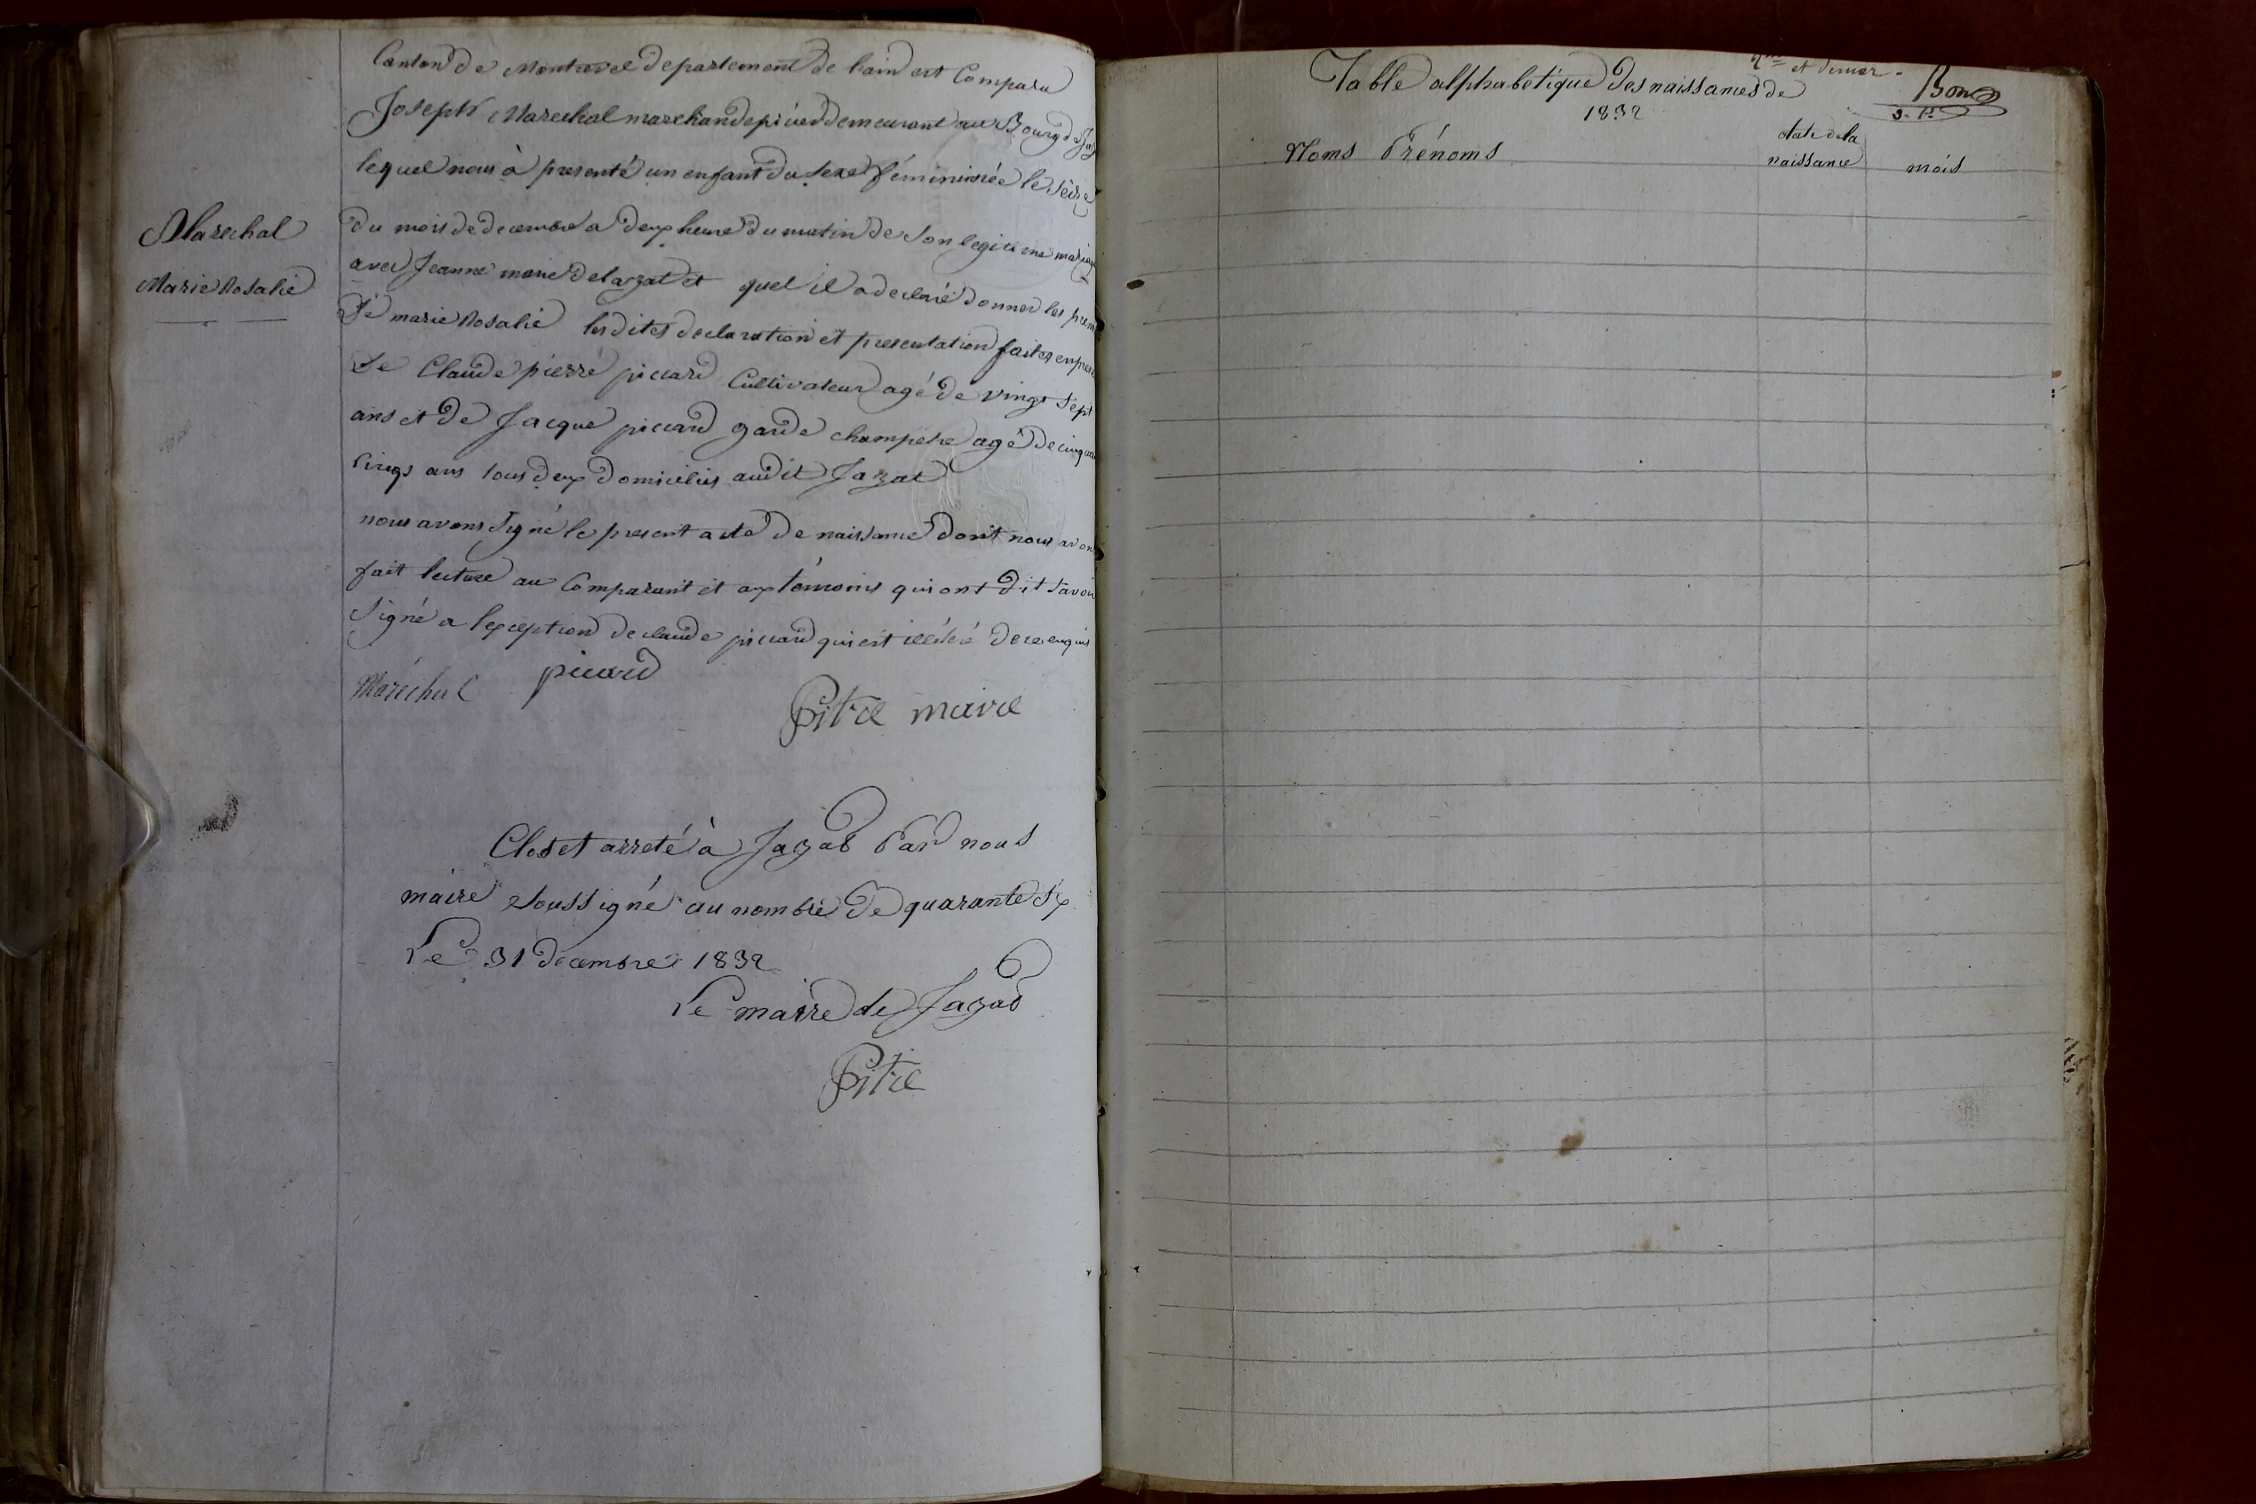 Canton de Montrevel departement de lain est Comparu
Joseph Marechal marchand epicier demeurant au Bourg de Jay
lequel nous à presenté un enfant du sexe féminin née le seize
Marechal
Marie Rosalie
du mois de decembre a deux heure du matin de son legitime mariage
avec Jeanne marie delazat et quel il a declaré donner les prenoms
dé marie Rosalie les dites declaration et presentation faites en pres
de Claude pierre piccard Cultivateur agé de vingt sept
ans et de Jacque piccard garde champetre agé de cinquante
cinqs ans tous deux domicilies audit Jazat
nous avons signé le present acte de naissance dont nous avons
fait lecture au Comparant et aux témoins qui ont dit savoir
signé a lexception de claude piccard qui est illétré de ce enquis
Maréchal picard
Pitre maire
Clos et arreté à Jazat Par nous
maire soussigné au nombre de quarante six
Le 31 decembre 1832
Le maire de Jazat
Pitre
et dernier
Table alphabetique des naissances de
1832
Bon
Noms Prénoms
date de la
naissance
mois